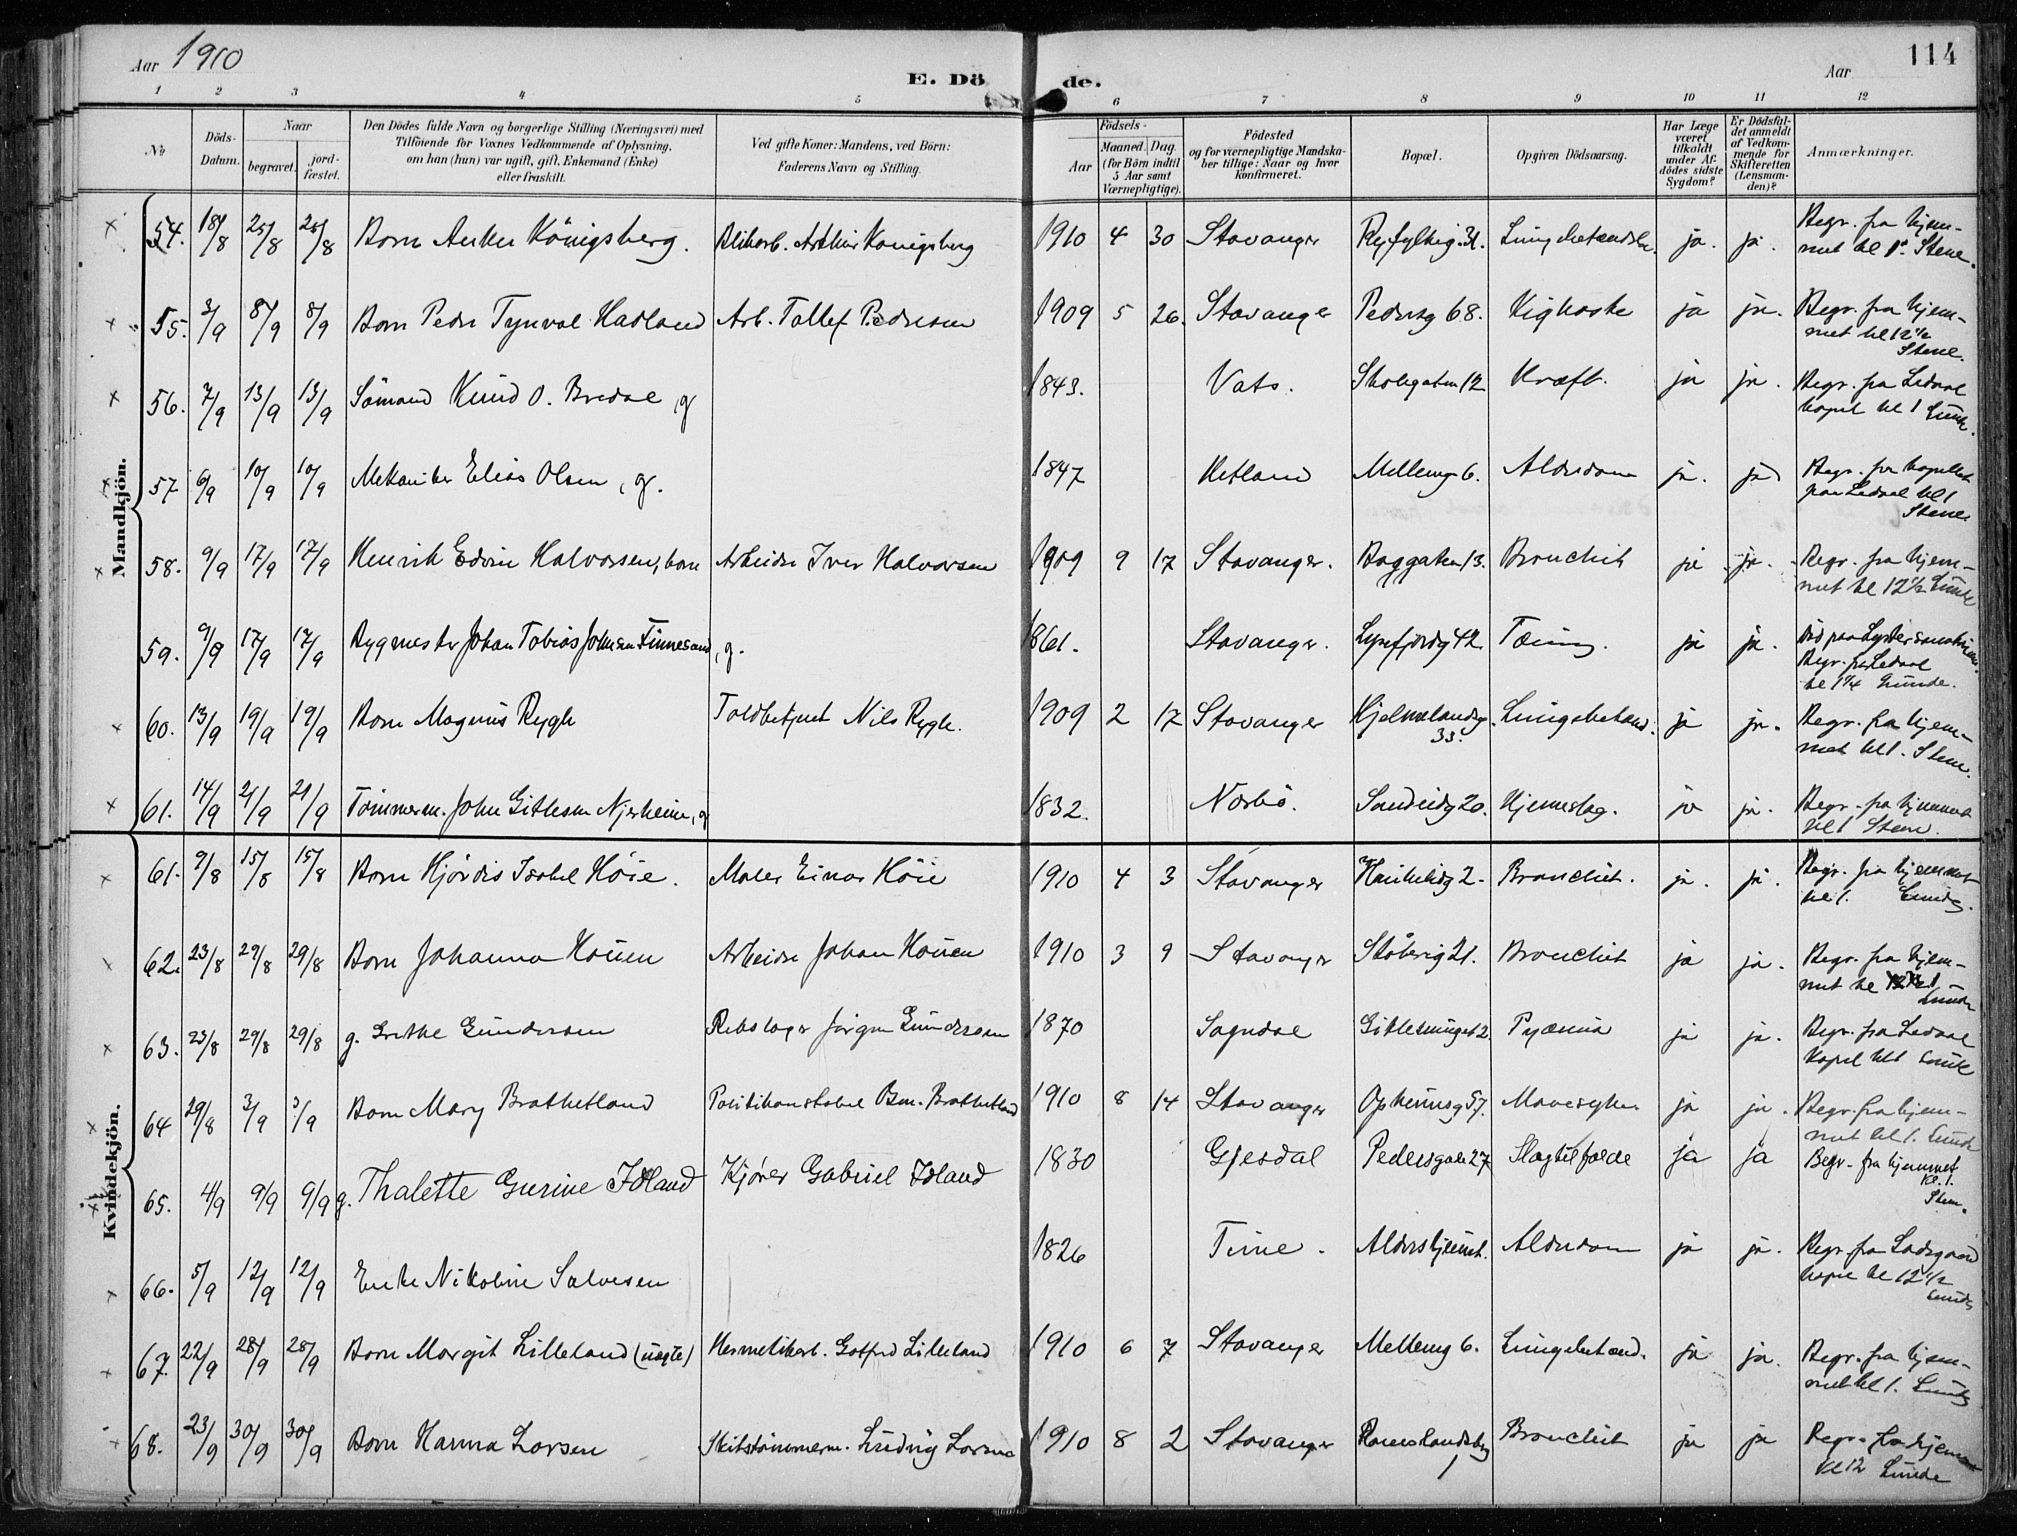 Aar 1910
E. Dö
de.
Aar
114
1 2 3 4 5 6 7 8 9 10 11 12
No
Döds-Datum.
Naar
begravet.
jord-fæstet.
Den Dödes fulde Navn og borgerlige Stilling (Næringsvei) med
Tilföiende for Voxnes Vedkommende af Oplysning,
om han (hun) var ugift, gift, Enkemand (Enke)
eller fraskilt.
Ved gifte Koner: Mandens, ved Börn:
Faderens Navn og Stilling.
Födsels-
Aar
Maaned. Dag.
(for Börn indtil
5 Aar samt
Værnepligtige).
Födested
og for værnepligtige Mandska-
ber tillige: Naar og hvor
konfirmeret.
Bopæl.
Opgiven Dödsaarsag.
Har Læge
været
tilkaldt
under Af-
dödes sidste
Sygdom?
Er Dödsfal-
det anmeldt
af Vedkom-
mende for
Skifteretten
(Lensman-
den)?
Anmærkninger.
Mandkjön.
54. 18/8 25/8 25/8 Barn Anker Königsberg. Blikarb. Arthur Königsberg 1910 4 30 Stavanger Ryfylkeg. 31. ja. ja. Begr. fra hjem-
met kl 1. Stene.
55. 3/9 8/9 8/9 Barn Peder Tynval Hadland Arb. Tollef Pedersen 1909 5 26. Stavanger Pedersg 68. Kighoste ja ja. Begr. fra hjem-
met kl 12 1/2
Stene.
56. 7/9 13/9 13/9 Sömand Knud O. Bredal, g 1843. Vats. Skolegaten 12 Kræft. ja ja. Begr. fra Ledaal
kapel kl 1 Lunde.
57 6/9 10/9 10/9 Mekaniker Elias Olsen, g. 1847 Hetland Mellemg 6. Alderdom ja. ja Begr. fra kapellet
paa Ledaal kl 1
Stene
58. 9/9 17/9 17/9 Henrik Edvin Halvorsen, barn Arbeider Iver Halvorsen 1909 9 17 Stavanger. Baggaten 13. Bronchit ja ja. Begr. fra hjem-
met kl 12 1/2 Lunde
59. 9/9 17/9 17/9 Bygmester Johan Tobias Johnsen Finnesand, g. 1861. Stavanger. Lysefjordg 42. Tæring. ja ja. Död paa Lyster sanatorium.
Begr. fra Ledaal
kl 1 1/4 Lunde.
60. 13/9 19/9 19/9 Barn Magnus Rygh Toldbetjent Nils Rygh. 1909 2 17 Stavanger Hjelmelandsg
33. Lungebetænd. ja ja. Begr. fra hjem-
met kl 1. Stene.
61. 14/9 21/9 21/9 Tömmerm. John Gitlesen Njerheim, g 1832. Nærbö. Sandeidg 20. Hjerneslag. ja ja. Begr. fra hjemmet
kl 1 Stene.
Kvindekjön.
61. 9/8 15/8 15/8 Barn Hjördis Isabel Höie. Maler Einar Höie 1910 4 3 Stavanger Haukelidg 2. Bronchit. ja. ja. Begr. fra hjemmet
kl 1. Lunde.
62. 23/8 29/8 29/8 Barn Johanna Houen Arbeider Johan Houen 1910 3 9 Stavanger Stöberig 21. Bronchit ja ja. Begr. fra hjem-
met kl 1
Lunde
63. 23/8 29/8 29/8 g. Grethe Gundersen Rebslager Jörgen Gundersen 1870 Sogndal Pyæmia ja ja. Begr. fra Ledaal
kapel kl 1 Lunde
64 29/8 3/9 3/9 Barn Mary Brathetland Politikonstabel Brathetland 1910 8 14 Stavanger Opheimsg 57. Mavesyke ja ja. Begr. fra hjem-
met kl 1. Lunde
65. 4/9 9/9 9/9 g. Thalette Gurine Idland Kjörer Gabriel Idland 1830 Gjesdal Pedersgate 27 Slagtilfælde ja ja Begr. fra hjemmet
kl. 1.
Stene.
66. 5/9 12/9 12/9 Enke Nikoline Salvesen 1826 Time. Aldershjemmet. Alderdom ja ja. Begr. fra Ladegaard
kapel kl 12 1/2
Lunde
67. 22/9 28/9 28/9 Barn Margit Lilleland (uægte) Hermetikarb. Gotfred Lilleland 1910 6 7 Stavanger Mellemg 6. Lungebetænd. ja ja. Begr. fra hjem-
met kl 1. Lunde
68. 23/9 30/9 30/9 Barn Hanna Larsen Skibstömmerm. Ludvig Larsen 1910 8 2 Stavanger Bronchit ja ja Begr. fra hjemmet
kl 12 Lunde